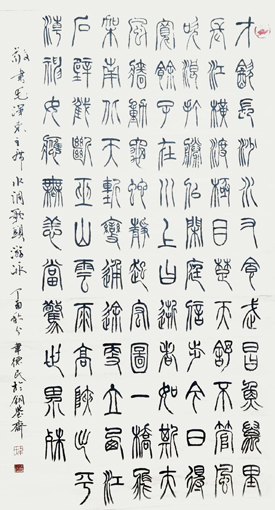 才飲長沙水又食武昌魚萬里
長江橫渡極目楚天舒不管風
吹浪打勝似閒庭信步今日得
寬餘子在川上曰逝者如斯夫
風檣動龜蛇靜起宏圖一橋飛
架南北天塹變通途更立西江
石壁截斷巫山雲雨高峽出平
湖神女應無恙當驚世界殊
敬書毛澤東主席水調歌頭游泳丁酉秋分德民於齋